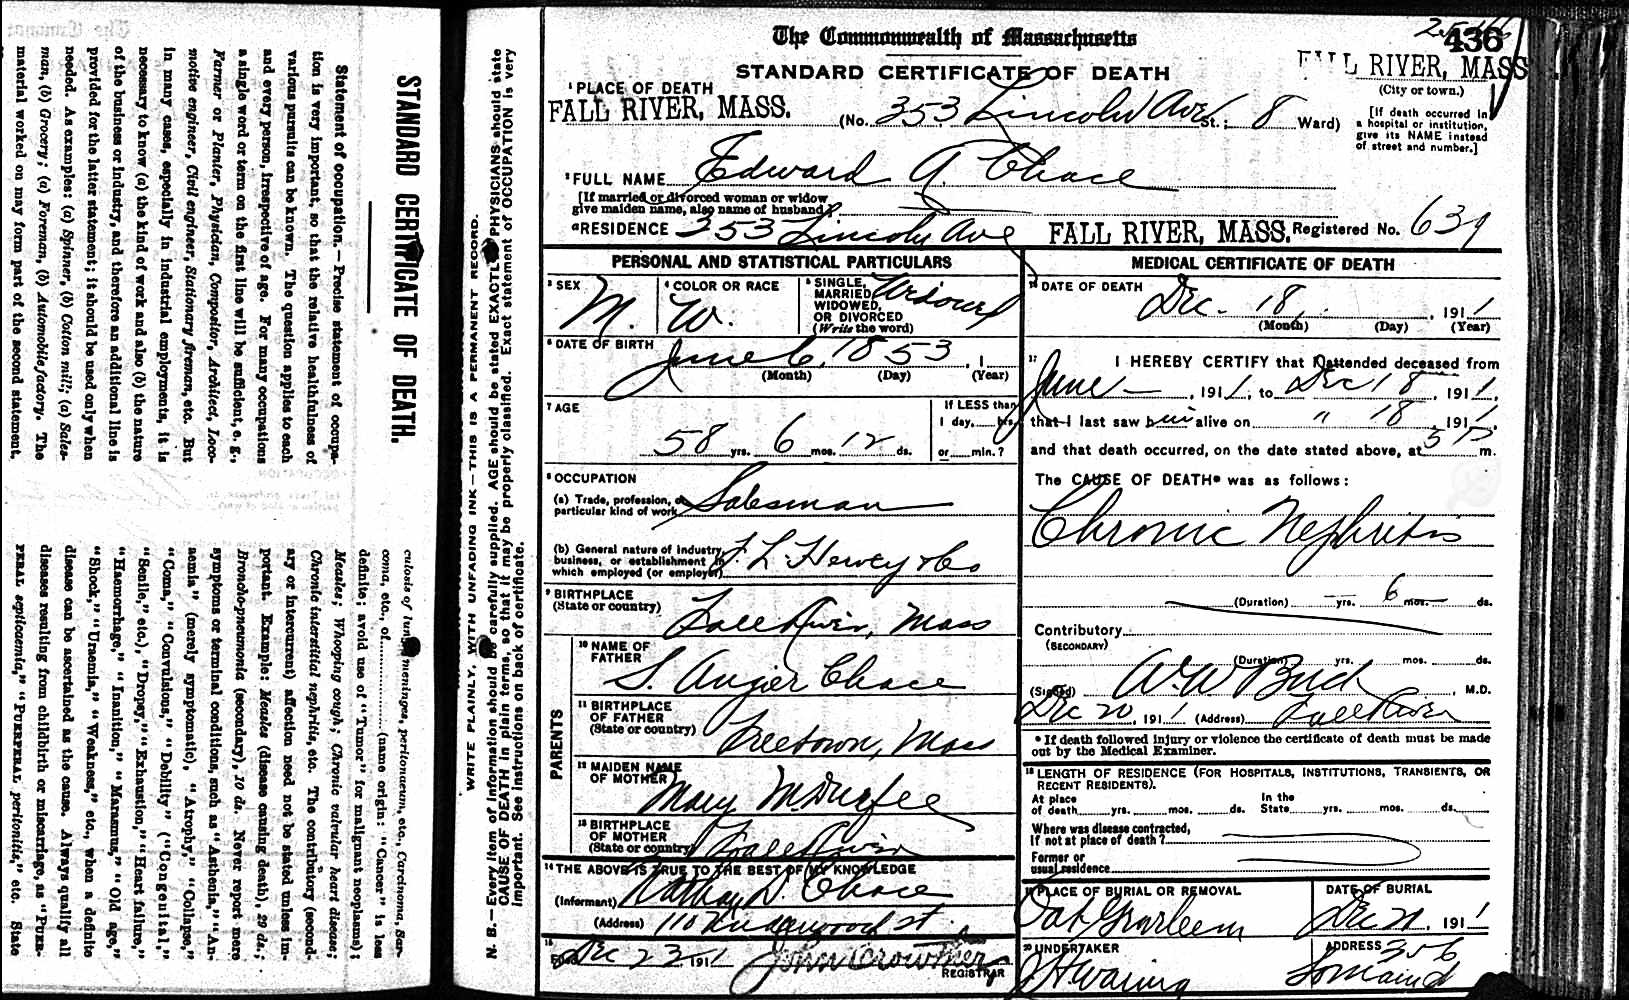 The Commonwealth of Massachusetts
436
STANDARD CERTIFICATE OF DEATH
FALL RIVER, MASS
(City or town.)
1 PLACE OF DEATH
FALL RIVER, MASS.
(No. 353 Lincoln Ave St.; 8 Ward)
[If death occurred in a hospital or institution, give its NAME instead of street and number.]
2 FULL NAME Edward A. Chace
[If married or divorced woman or widow give maiden name, also name of husband.]
a RESIDENCE 353 Lincoln Ave FALL RIVER, MASS. Registered No. 639
PERSONAL AND STATISTICAL PARTICULARS
3 SEX M.
4 COLOR OR RACE W.
5 SINGLE, MARRIED, WIDOWED, OR DIVORCED (Write the word) Widowed
6 DATE OF BIRTH June 6, 1853, 1
(Month) (Day) (Year)
7 AGE
58 yrs. 6 mos. 12 ds.
If LESS than
1 day, hrs.
or min.?
8 OCCUPATION
(a) Trade, profession, or particular kind of work Salesman
(b) General nature of industry, business, or establishment in which employed (or employer) F. L. Hervey & Co
9 BIRTHPLACE
(State or country) Fall River, Mass
PARENTS
10 NAME OF FATHER
S. Angier Chace
11 BIRTHPLACE OF FATHER
(State or country) Freetown, Mass
12 MAIDEN NAME OF MOTHER
Mary McDurfee
13 BIRTHPLACE OF MOTHER
(State or country) Fall River
14 THE ABOVE IS TRUE TO THE BEST OF MY KNOWLEDGE
(Informant) Nathan D. Chace
(Address) 110 Underwood St
15
Filed Dec 23 1911
REGISTRAR
MEDICAL CERTIFICATE OF DEATH
16 DATE OF DEATH
Dec. 18, 1911
(Month) (Day) (Year)
17 I HEREBY CERTIFY that I attended deceased from
June — , 1911, to Dec 18 , 1911,
that I last saw him alive on " 18 , 1911,
and that death occurred, on the date stated above, at m.
The CAUSE OF DEATH* was as follows:
Chronic Nephritis
(Duration) yrs. 6 mos. ds.
Contributory
(SECONDARY)
(Duration) yrs. mos. ds.
(Signed) , M.D.
Dec 20, 1911 (Address) Fall River
* If death followed injury or violence the certificate of death must be made out by the Medical Examiner.
18 LENGTH OF RESIDENCE (FOR HOSPITALS, INSTITUTIONS, TRANSIENTS, OR RECENT RESIDENTS).
At place of death yrs. mos. ds. In the State yrs. mos. ds.
Where was disease contracted, if not at place of death?
Former or usual residence
19 PLACE OF BURIAL OR REMOVAL
Oak Grove Cem
DATE OF BURIAL
Dec 21, 1911
20 UNDERTAKER
J. H. Waring
ADDRESS 356
N. B.—Every item of information should be carefully supplied. AGE should be stated EXACTLY. PHYSICIANS should state
CAUSE OF DEATH in plain terms, so that it may be properly classified. Exact statement of OCCUPATION is very
important. See instructions on back of certificate.
WRITE PLAINLY, WITH UNFADING INK—THIS IS A PERMANENT RECORD.
STANDARD CERTIFICATE OF DEATH.
Statement of occupation.—Precise statement of occupa-
tion is very important, so that the relative healthfulness of
various pursuits can be known. The question applies to each
and every person, irrespective of age. For many occupations
a single word or term on the first line will be sufficient, e. g.,
Farmer or Planter, Physician, Compositor, Architect, Loco-
motive engineer, Civil engineer, Stationary fireman, etc. But
in many cases, especially in industrial employments, it is
necessary to know (a) the kind of work and also (b) the nature
of the business or industry, and therefore an additional line is
provided for the latter statement; it should be used only when
needed. As examples: (a) Spinner, (b) Cotton mill; (a) Sales-
man, (b) Grocery; (a) Foreman, (b) Automobile factory. The
material worked on may form part of the second statement.
culosis of lungs, meninges, peritonaeum, etc., Carcinoma, Sar-
coma, etc., of (name origin: "Cancer" is less
definite; avoid use of "Tumor" for malignant neoplasms);
Measles; Whooping cough; Chronic valvular heart disease;
Chronic interstitial nephritis, etc. The contributory (second-
ary or intercurrent) affection need not be stated unless im-
portant. Example: Measles (disease causing death), 29 ds.;
Broncho-pneumonia (secondary), 10 ds. Never report mere
symptoms or terminal conditions, such as "Asthenia," "An-
aemia," (merely symptomatic), "Atrophy," "Collapse,"
"Coma," "Convulsions," "Debility" ("Congenital,"
"Senile," etc.), "Dropsy," "Exhaustion," "Heart failure,"
"Haemorrhage," "Inanition," "Marasmus," "Old age,"
"Shock," "Uraemia," "Weakness," etc., when a definite
disease can be ascertained as the cause. Always qualify all
diseases resulting from childbirth or miscarriage, as "PUER-
PERAL septicaemia," "PUERPERAL peritonitis," etc. State